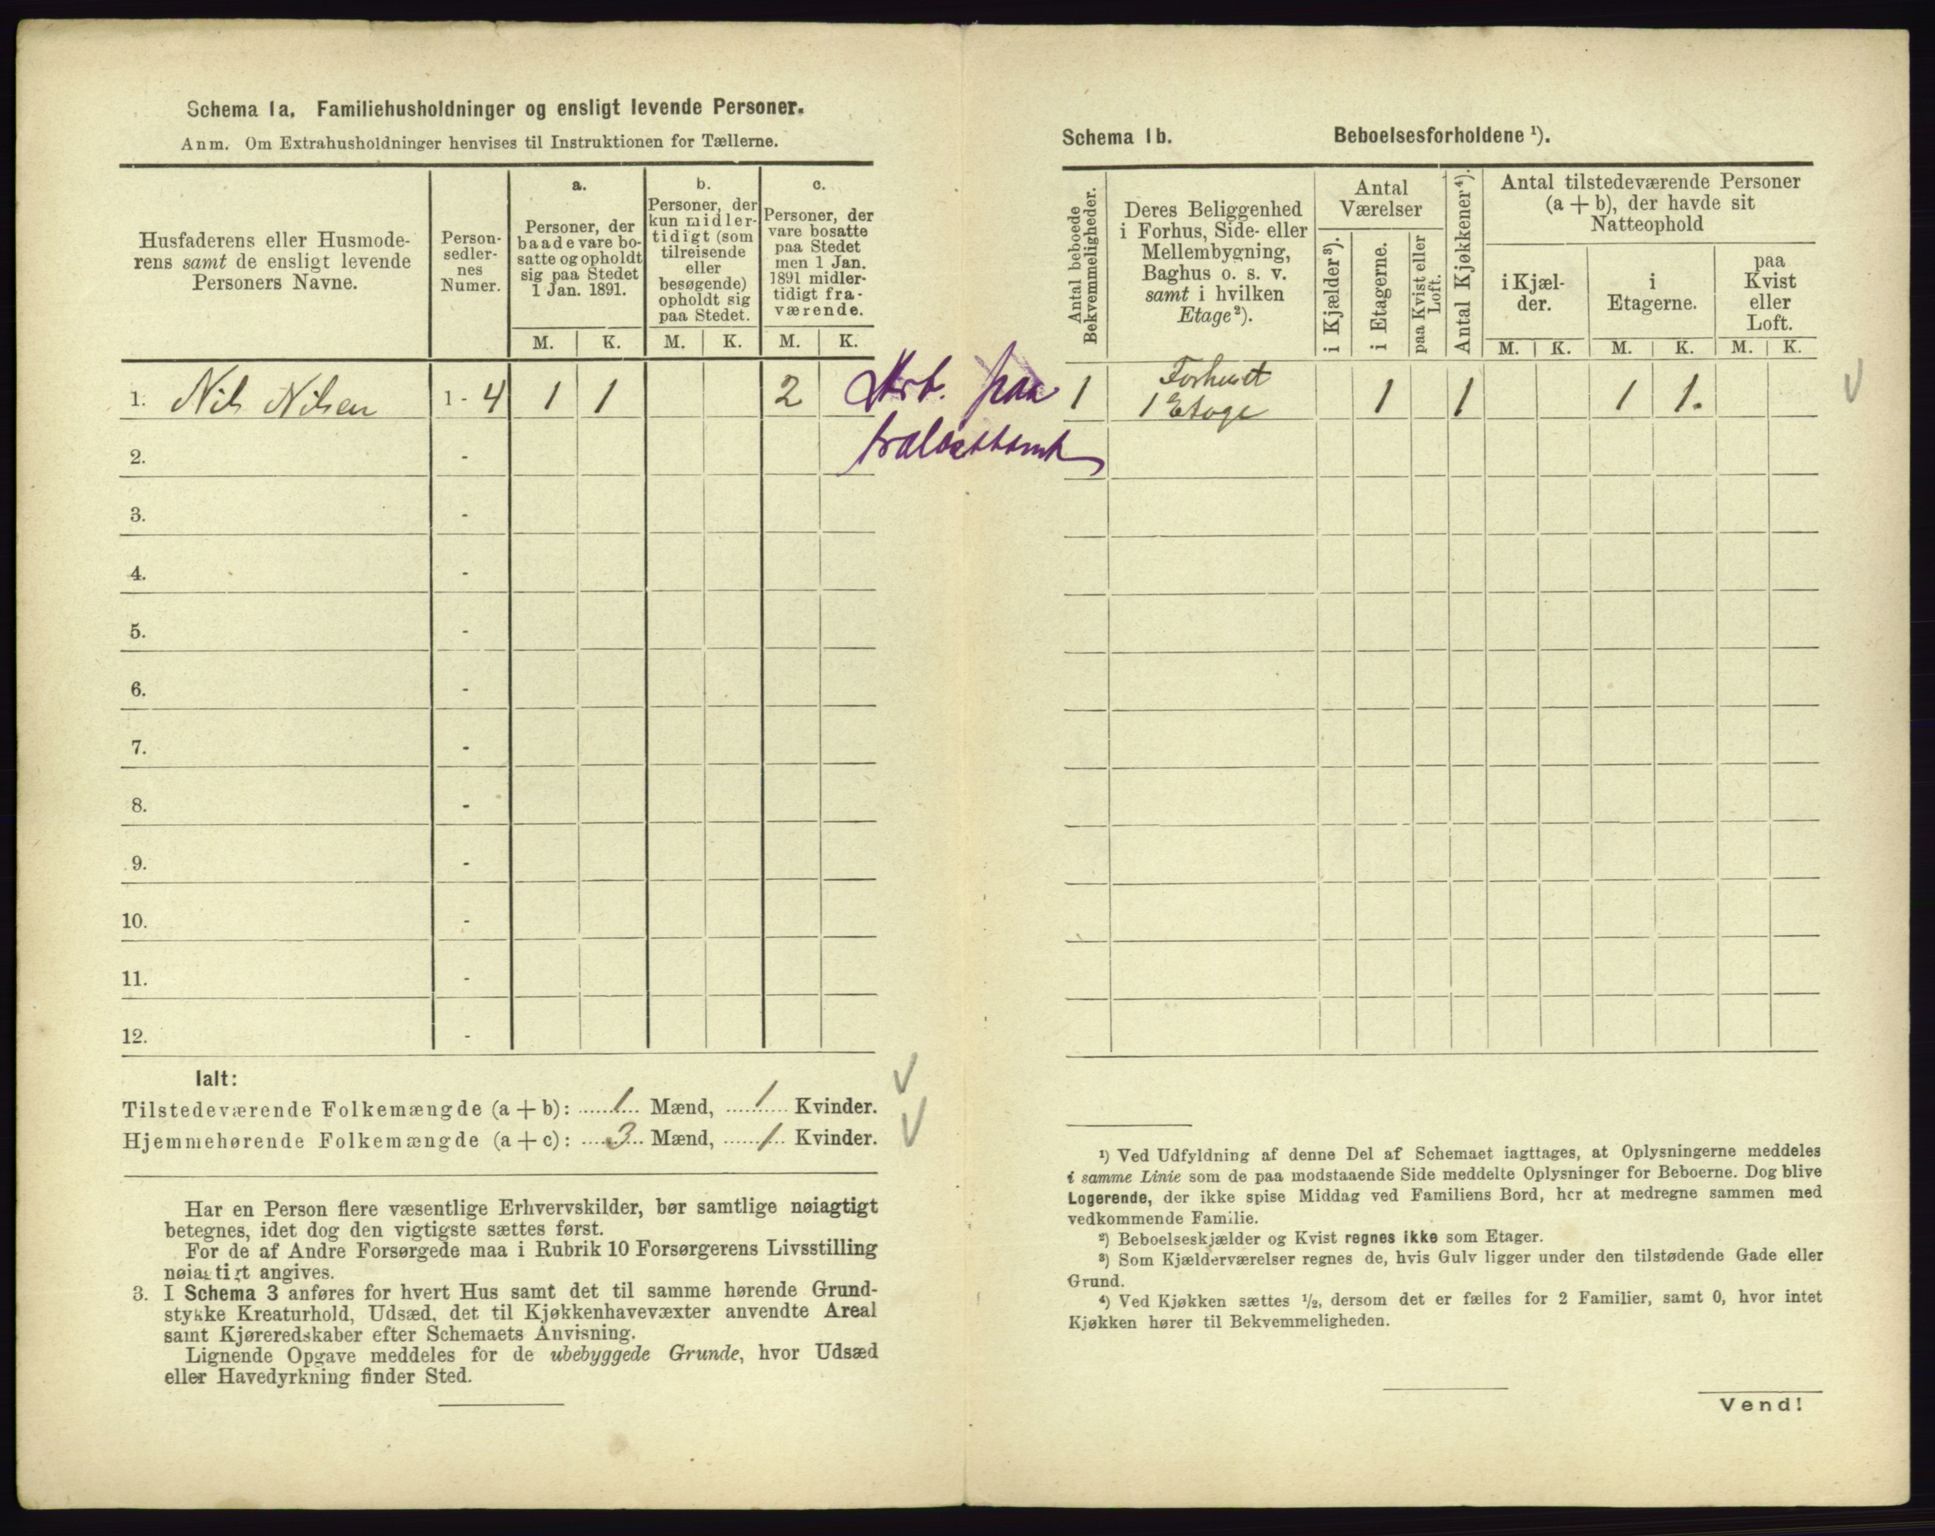 Schema 1a. Familiehusholdninger og ensligt levende Personer.
Anm. Om Extrahusholdninger henvises til Instruktionen for Tællerne.
Husfaderens eller Husmoderens samt de ensligt levende Personers Navne.
Personsedlernes Numer.
a.
Personer, der baade vare bosatte og opholdt sig paa Stedet 1 Jan. 1891.
b.
Personer, der kun midlertidigt (som tilreisende eller besøgende) opholdt sig paa Stedet.
c.
Personer, der vare bosatte paa Stedet men 1 Jan. 1891 midlertidigt fraværende.
M. K. M. K. M. K.
1. Nils Nilsen 1 - 4 1 1 2 Arb. paa
2. -
3. -
4. -
5. -
6. -
7. -
8. -
9. -
10. -
11. -
12. -
Ialt:
Tilstedeværende Folkemængde (a + b): 1 Mænd, 1 Kvinder.
Hjemmehørende Folkemængde (a + c): 3 Mænd, 1 Kvinder.
Har en Person flere væsentlige Erhvervskilder, bør samtlige nøiagtigt
betegnes, idet dog den vigtigste sættes først.
For de af Andre Forsørgede maa i Rubrik 10 Forsørgerens Livsstilling
nøiagtigt angives.
3. I Schema 3 anføres for hvert Hus samt det til samme hørende Grund-
stykke Kreaturhold, Udsæd, det til Kjøkkenhavevæxter anvendte Areal
samt Kjøreredskaber efter Schemaets Anvisning.
Lignende Opgave meddeles for de ubebyggede Grunde, hvor Udsæd
eller Havedyrkning finder Sted.
Schema 1b. Beboelsesforholdene ¹).
Antal beboede Bekvemmeligheder.
Deres Beliggenhed i Forhus, Side- eller Mellembygning, Baghus o. s. v. samt i hvilken Etage ²).
Antal Værelser
i Kjælder ³).
i Etagerne.
paa Kvist eller Loft.
Antal Kjøkkener ⁴).
Antal tilstedeværende Personer (a + b), der havde sit Natteophold
i Kjælder.
i Etagerne.
paa Kvist eller Loft.
M. K. M. K. M. K.
1 Forhuset 1 Etage 1 1 1 1.
¹) Ved Udfyldning af denne Del af Schemaet iagttages, at Oplysningerne meddeles
i samme Linie som de paa modstaaende Side meddelte Oplysninger for Beboerne. Dog blive
Logerende, der ikke spise Middag ved Familiens Bord, her at medregne sammen med
vedkommende Familie.
²) Beboelseskjælder og Kvist regnes ikke som Etager.
³) Som Kjælderværelser regnes de, hvis Gulv ligger under den tilstødende Gade eller
Grund.
⁴) Ved Kjøkken sættes ½, dersom det er fælles for 2 Familier, samt 0, hvor intet
Kjøkken hører til Bekvemmeligheden.
Vend!